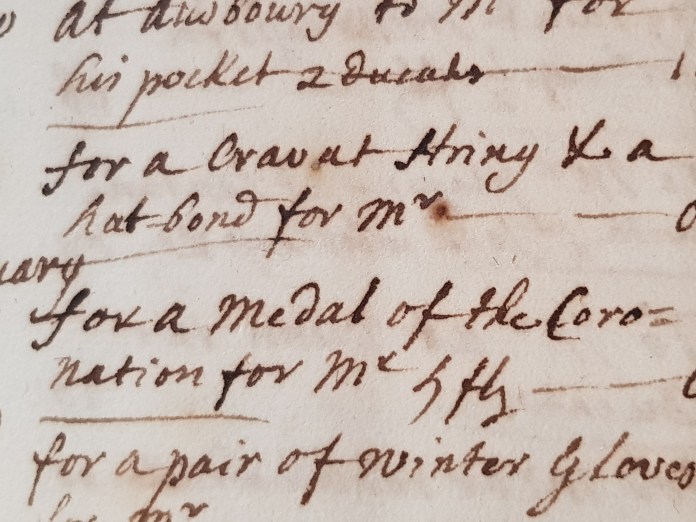 at to Mr for
his pocket 2 ducats
for a Cravat string & a
hat-bond for Mr
for a Medal of the Coro=
nation for Mr
for a pair of winter Gloves
for Mr